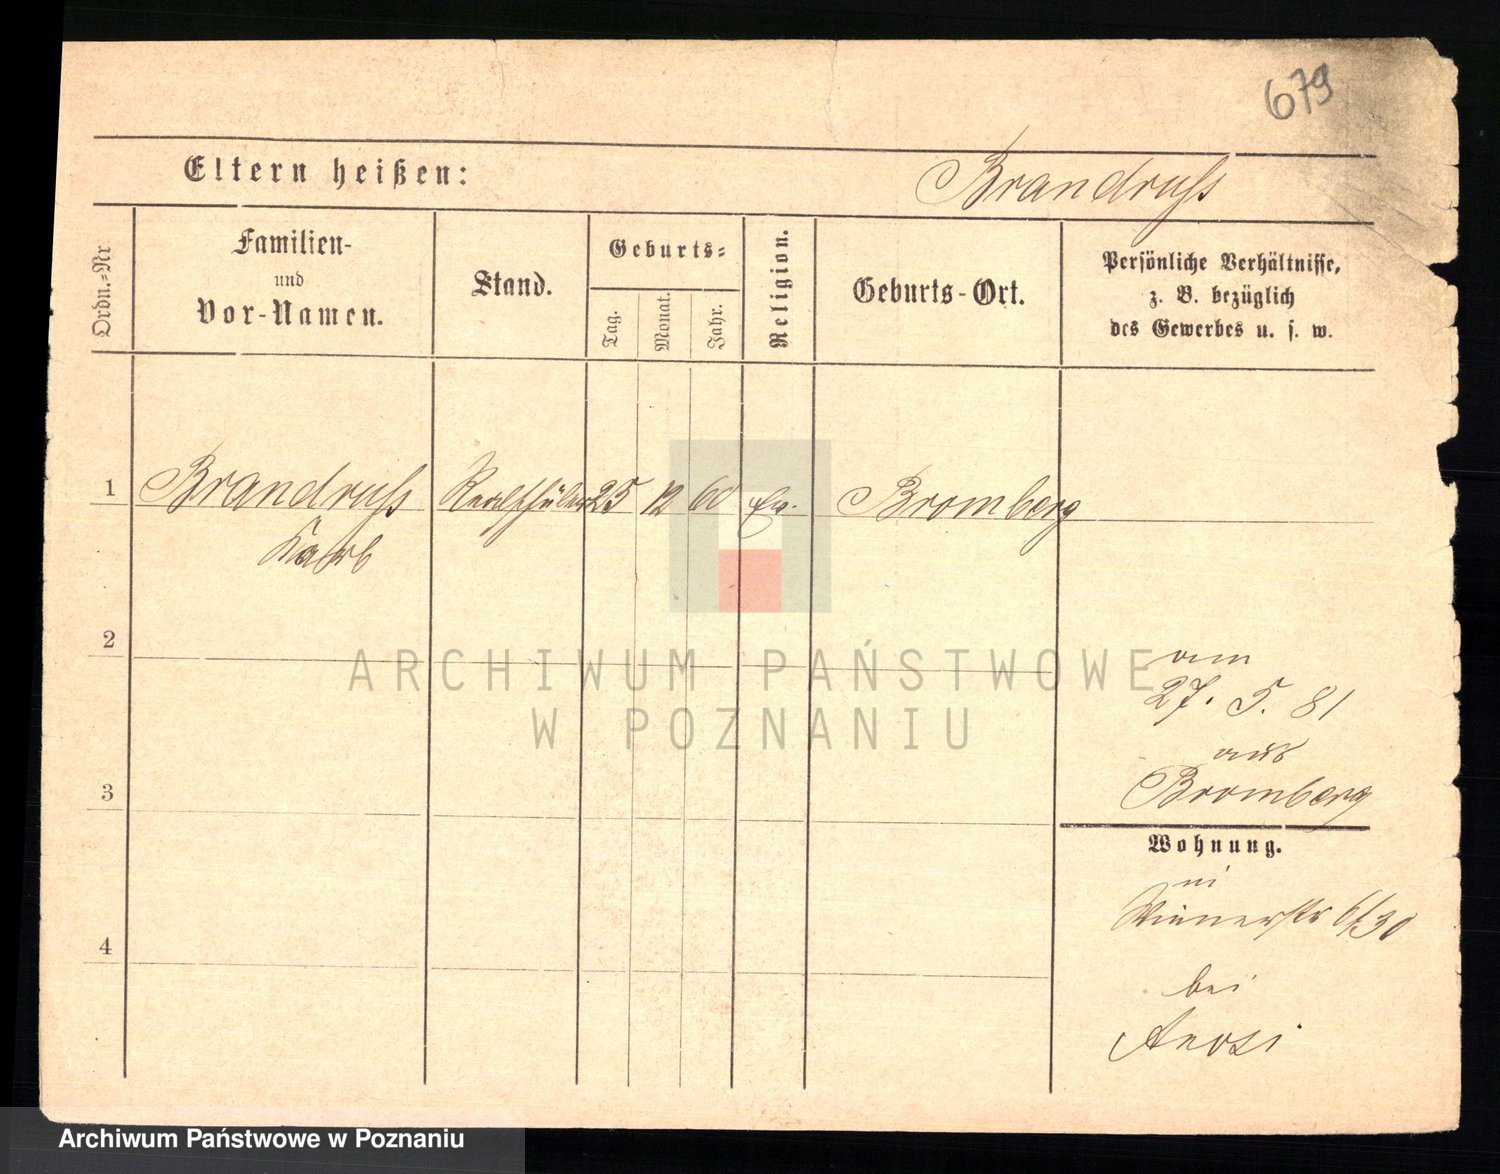 679
Eltern heißen:
Brandruss
Ordn.-Nr
Familien-
und
Vor-Namen.
Stand.
Geburts-
Tag.
Monat.
Jahr.
Religion.
Geburts-Ort.
Persönliche Verhältnisse,
z. B. bezüglich
des Gewerbes u. s. w.
1 Brandruss Realschüler 25 12 60 Ev. Bromberg
2
am
27. 5. 81
aus
3 Bromberg
Wohnung.
in
Wienerstr 6/30
4
bei
ARCHIWUM PAŃSTWOWE
W POZNANIU
Archiwum Państwowe w Poznaniu